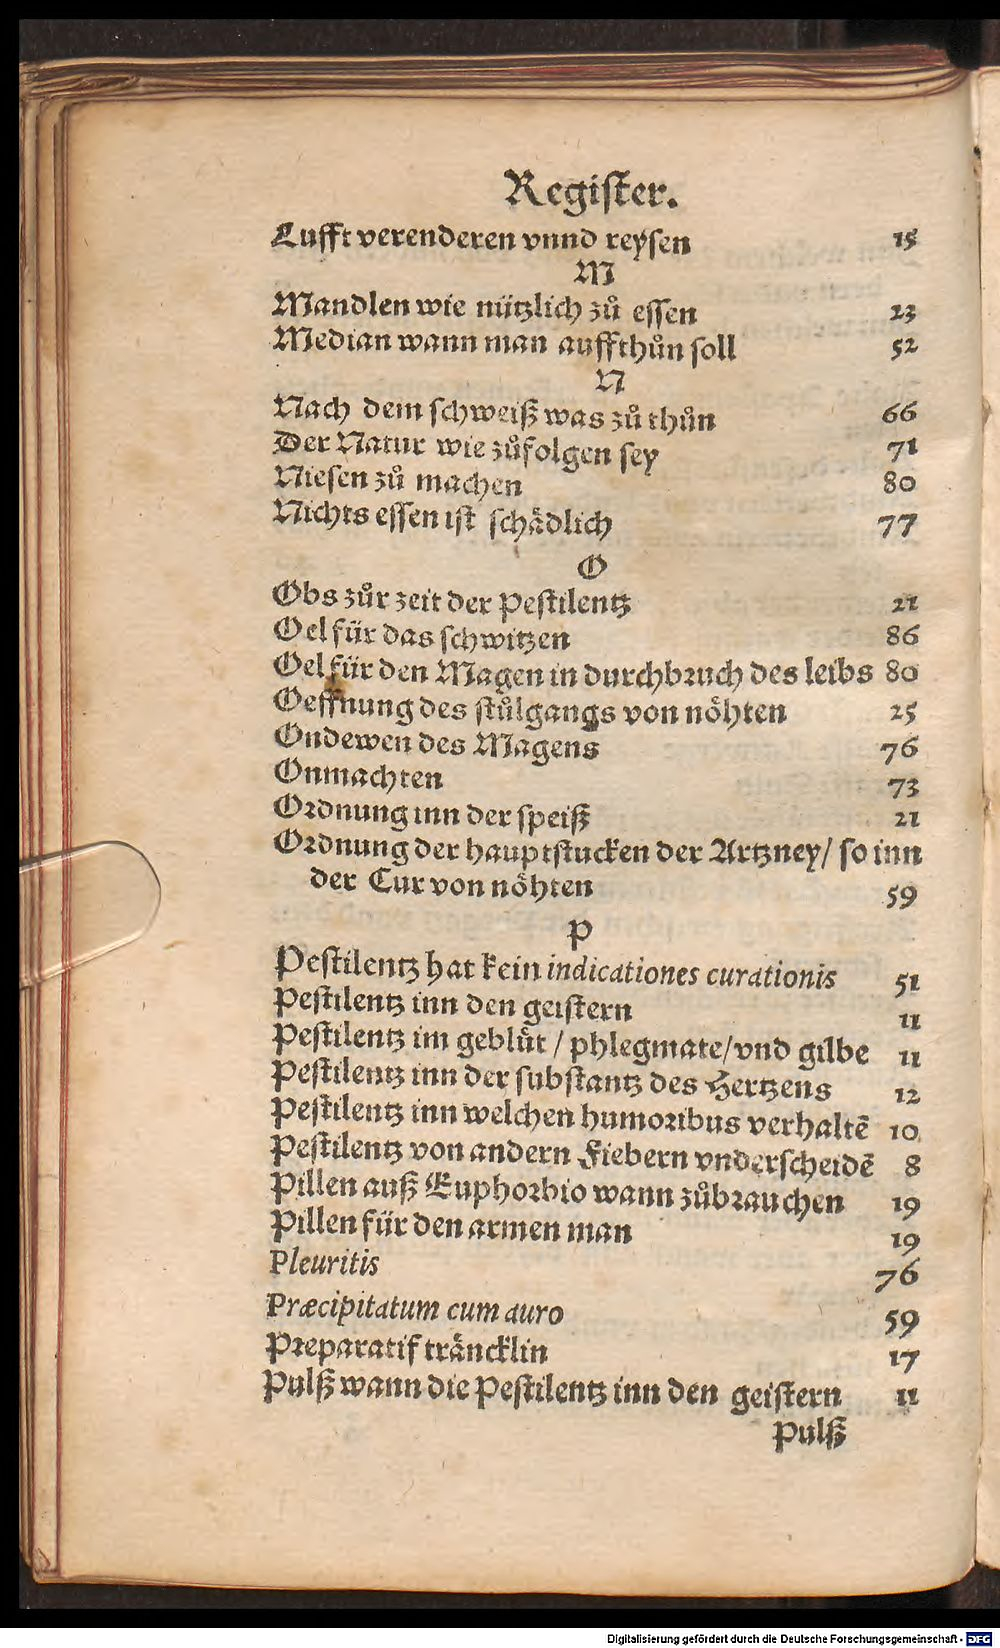 Regiſter.
Lufft verenderen vnnd reyſen 15
M
Mandlen wie nützlich zů eſſen 23
Median wann man auffthůn ſoll 52
N
Nach dem ſchweiß was zů thůn 66
Der Natur wie zůfolgen ſey 71
Nieſen zů machen 80
Nichts eſſen iſt ſchädlich 77
O
Obs zůr zeit der Peſtilentz 21
Oel für das ſchwitzen 86
Oel für den Magen in durchbruch des leibs 80
Oeffnung des ſtůlgangs von nöhten 25
Ondewen des Magens 76
Onmachten 73
Ordnung inn der ſpeiß 21
Ordnung der hauptſtucken der Artzney/ ſo inn
der Cur von nöhten 59
P
Peſtilentz hat kein indicationes curationis 51
Peſtilentz inn den geiſtern 11
Peſtilentz im geblüt / phlegmate/vnd gilbe 11
Peſtilentz inn der ſubſtantz des Hertzens 12
Peſtilentz inn welchen humoribus verhaltē 10
Peſtilentz von andern Fiebern vnderſcheidē 8
Pillen auß Euphorbio wann zůbrauchen 19
Pillen für den armen man 19
Pleuritis 76
Præcipitatum cum auro 59
Preparatif träncklin 17
Pulß wann die Peſtilentz inn den geiſtern 11
Pulß
Digitalisierung gefördert durch die Deutsche Forschungsgemeinschaft - DFG